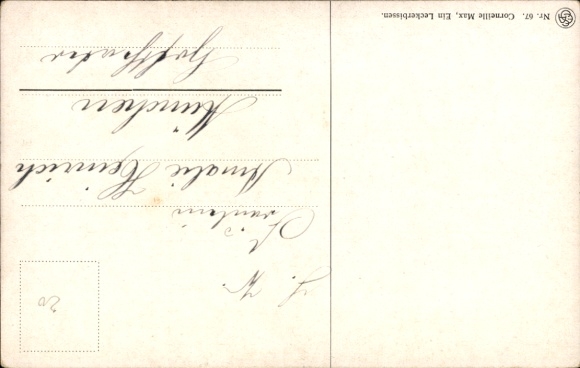 Nr. 67. Corneille Max, Ein Leckerbissen.
S. W.
Fräulein
Amalie Heinrich
München
Hoftheater
20